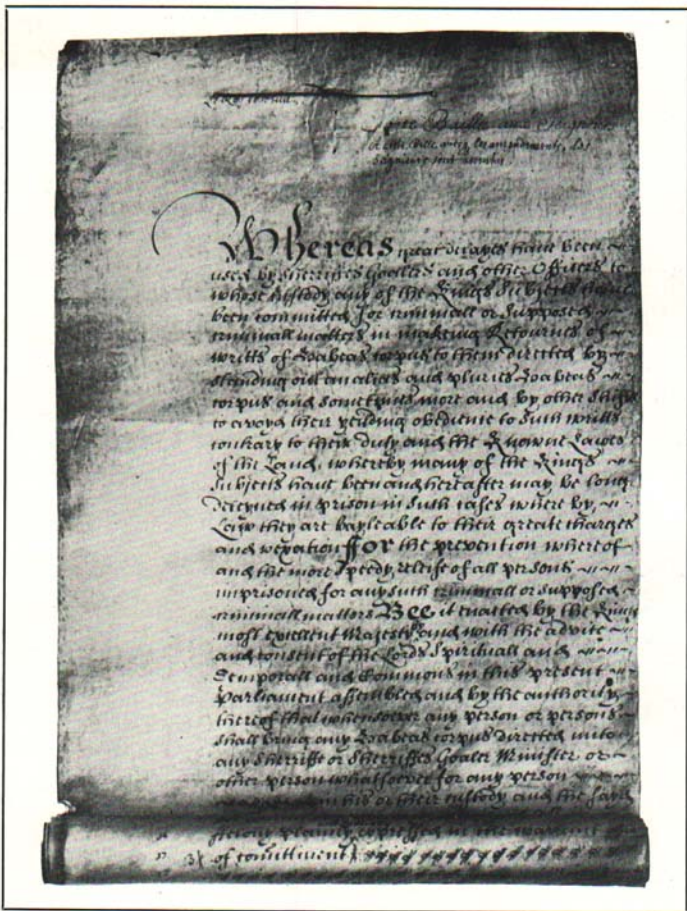 Whereas great delayes have been
used by Sherriffes Goalers and other Officers to
whose Custody any of the Kings Subjects have
been committed for criminall or Supposed
criminall matters in makeing Retournes of
writts of Habeas Corpus to them directed by
Standing out an alias and pluries Habeas
Corpus and sometimes more and by other Shifts
to avoyd their yeilding obedience to Such writts
contrary to their duty and the Knowne Lawes
of the Land, whereby many of the Kings
Subjects have been and hereafter may be long
detayned in prison in Such cases where by
Law they are bayleable to their great charges
and vexation ffor the prevention whereof
and the more Speedy releife of all persons
imprisoned for any such criminall or supposed
criminall matters Bee it enacted by the Kings
most excellent Majesty and with the advice
and consent of the Lords Spirituall and
Temporall and Commons in this present
Parliament assembled and by the authority
thereof that whensoever any person or persons
shall bring any Habeas Corpus directed unto
any Sherriffe or Sherriffes Goaler Minister or
other person whatsoever for any person
in his or their custody and the Said
plainly expressed in the warrant
of comittment